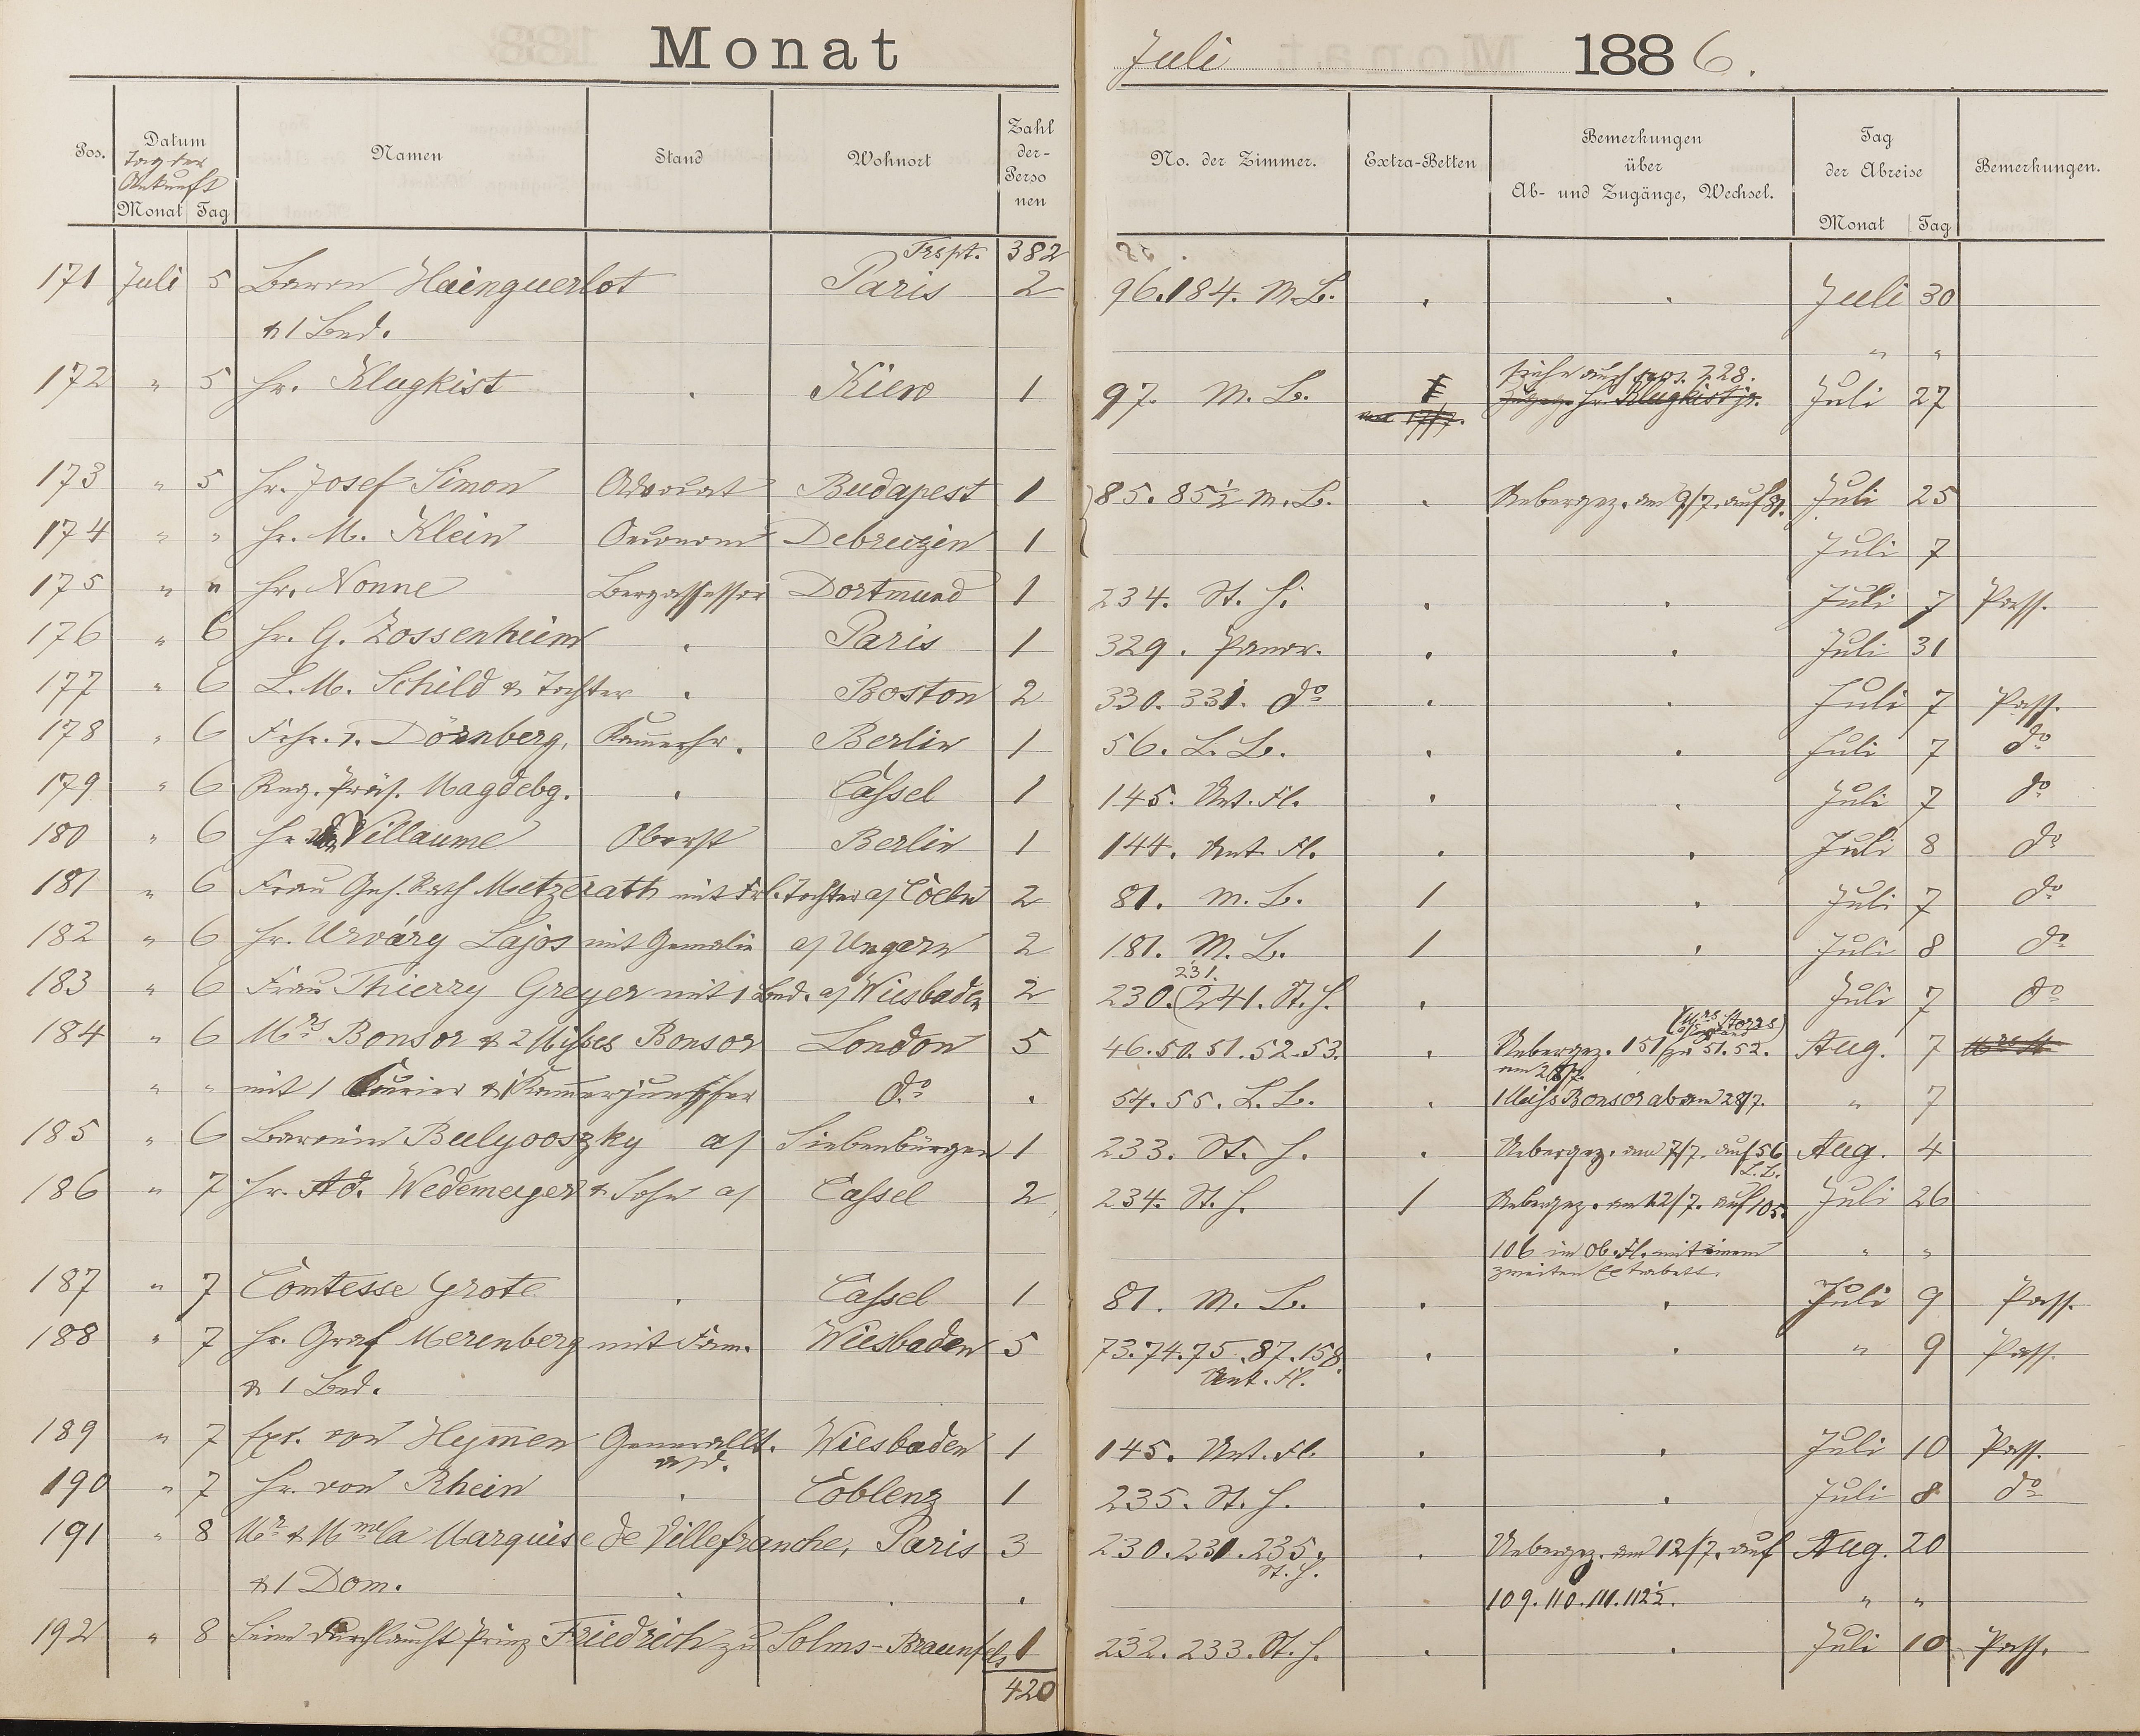 Monat Juli 1886.
Pos. Datum Namen Stand Wohnort Zahl der-Personen No. der Zimmer. Extra-Betten Bemerkungen über Ab- und Zugänge, Wechsel. Tag der Abreise Bemerkungen.
Tag der Ankunft
Monat Tag Monat Tag
Trspt. 382
171 Juli 5 Baron Hainguerlot Paris 2 96.184. M.L. . . Juli 30
& 1 Bed. " "
siehe auch pos. 228.
172 " 5 Hr. Klugkist . Kiew 1 97. M. L. 1 Hr. Klugkist jr. Juli 27
17/7.
173 " 5 Hr. Josef Simon Advocat Budapest 1 85. 85½ M.L. . Uebergez. am 9/7. auf 81. Juli 25
174 " " Hr. M. Klein Oeconom Debreczin 1 Juli 7
175 " " Hr. Nonne Bergassessor Dortmund 1 234. St. H. . . Juli 7 Pass.
176 " 6 Hr. G. Zossenheim . Paris 1 329. Panor. . . Juli 31
177 " 6 L. M. Schild & Tochter . Boston 2 330. 331. do . . Juli 7 Pass.
178 " 6 Frhr. v. Dörnberg, Kammerhr. Berlin 1 56. L. L. . . Juli 7 do
179 " 6 Reg. Präs. Magdebg. . Cassel 1 145. Unt. Fl. . . Juli 7 do
180 " 6 Hr. Villaume Oberst Berlin 1 144. Unt. Fl. . . Juli 8 do
181 " 6 Frau Geh. Rath Metzerath mit Frl. Tochter a/ Coeln 2 81. M. L. 1 . Juli 7 do
182 " 6 Hr. Urváry Lajos mit Gemalin a/ Ungern 2 181. M. L. 1 . Juli 8 do
231.
183 " 6 Frau Thierry Greyer mit 1 Bed. a/ Wiesbaden 2 230. (241. St. H. . Juli 7 do
(Mrs Storrs)
184 " 6 Mrs Bonsor & 2 Misses Bonsor London 5 46.50.51.52.53. . Uebergez. 151 zu 51.52. Aug. 7
am
" " mit 1 Courier & 1 Kammerjungfer do . 54. 55. L. L. . 1 Miss Bonsor ab am 28/7. " 7
185 " 6 Baronin Bulyooszky a/ Siebenbürgen 1 233. St. H. . Uebergez. am 7/7. auf 56 Aug. 4
L.L.
186 " 7 Hr. Ad. Wedemeyer & Sohn a/ Cassel 2 234. St. H. 1 Uebergez. am 12/7. auf 105. Juli 26
106 im Ob. Fl. mit einem " "
zweiten Extrabett.
187 " 7 Comtesse Grote . Cassel 1 81. M. L. . . Juli 9 Pass.
188 " 7 Hr. Graf Merenberg mit Fam. Wiesbaden 5 73.74.75.87.158. . . " 9 Pass.
& 1 Bed. Unt. Fl.
189 " 7 Exc. von Hymmen Generallt. Wiesbaden 1 145. Unt. Fl. . . Juli 10 Pass.
a/D.
190 " 7 Hr. von Rhein . Coblenz 1 235. St. H. . . Juli 8 do
191 " 8 Mr & Mme la Marquise de Villefranche, Paris 3 230.231.235. . Uebergez. am 12/7. auf Aug. 20
St. H.
& 1 Dom. . . . 109.110.111.112½. " "
192 " 8 Seine Durchlaucht Prinz Friedrich zu Solms-Braunfels 1 232. 233. St. H. . . Juli 10 Pass.
420